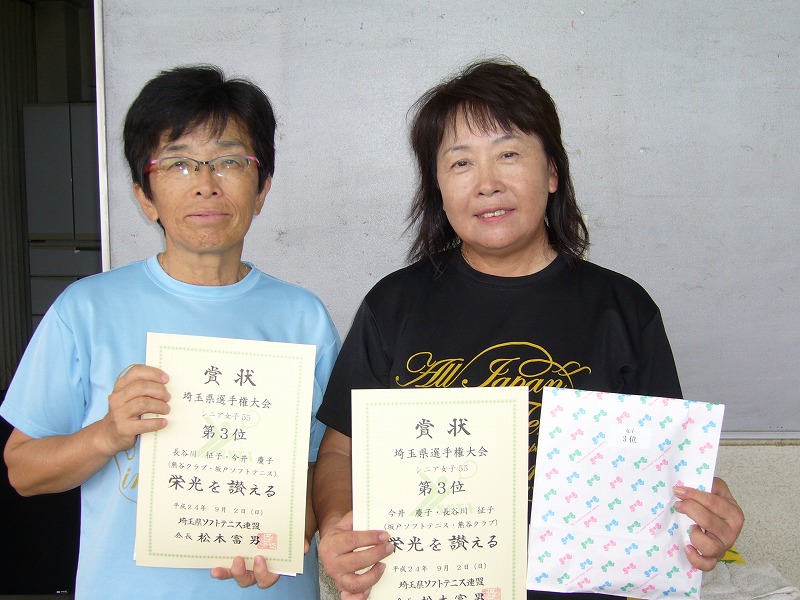 賞状
埼玉県選手権大会
シニア女子55
第3位
長谷川 征子・今井 慶子
(熊谷クラブ・坂戸ソフトテニス)
栄光を讃える
平成24年 9月 2日(日)
埼玉県ソフトテニス連盟
会長 松本富男
賞状
埼玉県選手権大会
シニア女子55
第3位
今井 慶子・長谷川 征子
(坂戸ソフトテニス・熊谷クラブ)
栄光を讃える
平成24年 9月 2日(日)
埼玉県ソフトテニス連盟
会長 松本富男
All Japan
女子
3位